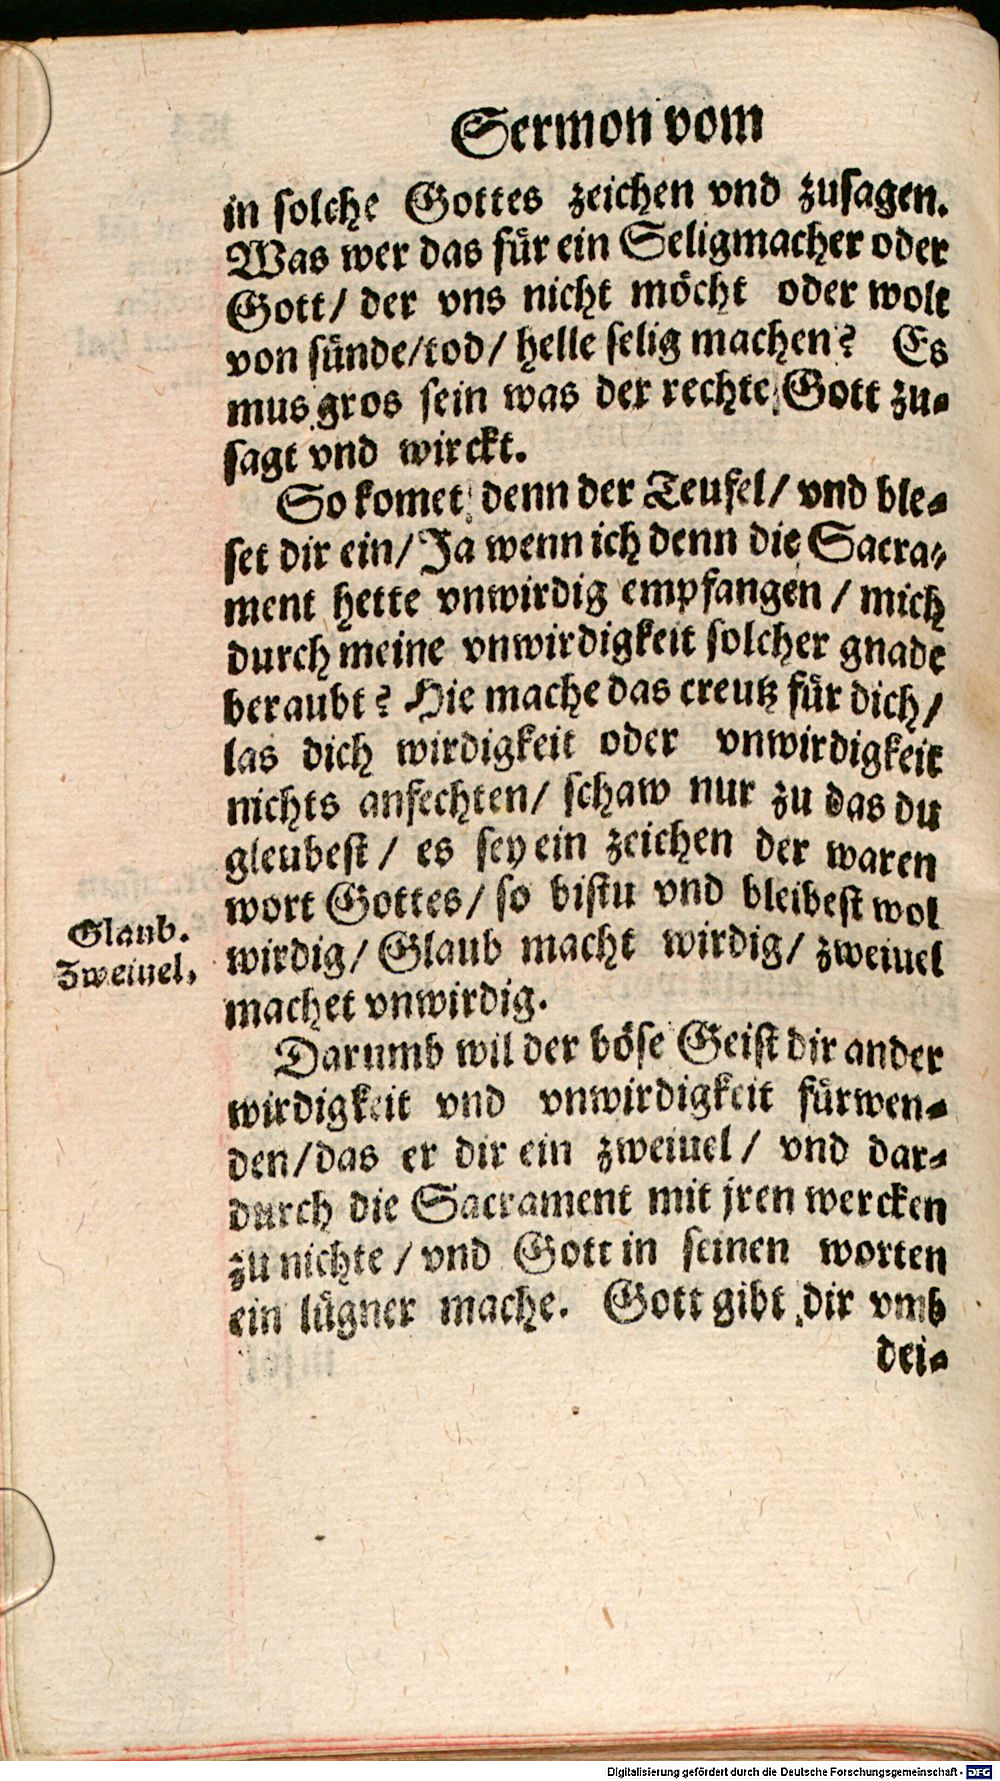 Sermon vom
in solche Gottes zeichen vnd zusagen.
Was wer das für ein Seligmacher oder
Gott/ der vns nicht möcht oder wolt
von sünde/tod/ helle selig machen? Es
mus gros sein was der rechte Gott zu-
sagt vnd wirckt.
So komet denn der Teufel/ vnd ble-
set dir ein/ Ja wenn ich denn die Sacra-
ment hette vnwirdig empfangen/ mich
durch meine vnwirdigkeit solcher gnade
beraubt? Hie mache das creutz für dich/
las dich wirdigkeit oder vnwirdigkeit
nichts anfechten/ schaw nur zu das du
gleubest/ es sey ein zeichen der waren
wort Gottes/ so bistu vnd bleibest wol
Glaub.
Zweiuel.
wirdig/ Glaub macht wirdig/ zweiuel
machet vnwirdig.
Darumb wil der böse Geist dir ander
wirdigkeit vnd vnwirdigkeit fürwen-
den/das er dir ein zweiuel/ vnd dar-
durch die Sacrament mit jren wercken
zu nichte/ vnd Gott in seinen worten
ein lügner mache. Gott gibt dir vmb
dei-
Digitalisierung gefördert durch die Deutsche Forschungsgemeinschaft - DFG